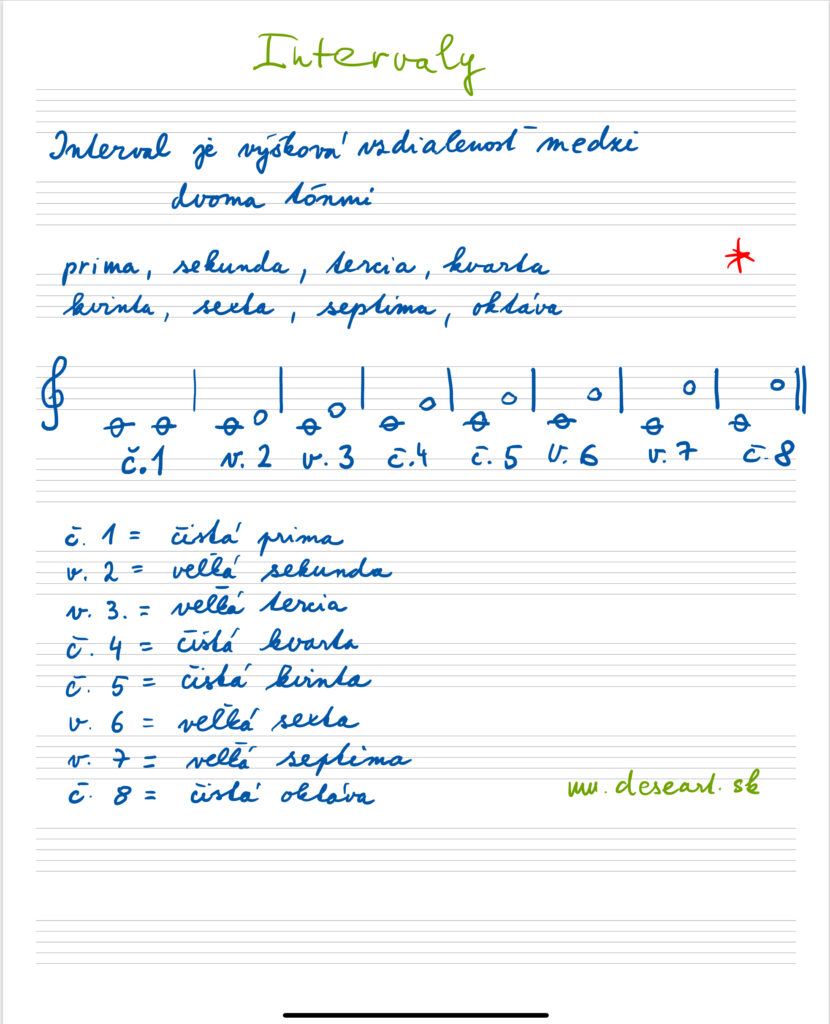 Intervaly
Interval je výšková vzdialenosť medzi
dvoma tónmi
prima, sekunda, tercia, kvarta
kvinta, sexta, septima, oktáva
č.1 v. 2 v. 3 č.4 č. 5 v. 6 v. 7 č 8
č. 1 = čistá prima
v. 2 = veľká sekunda
v. 3. = veľká tercia
č. 4 = čistá kvarta
č. 5 = čistá kvinta
v. 6 = veľká sexta
v. 7 = veľká septima
č. 8 = čistá oktáva